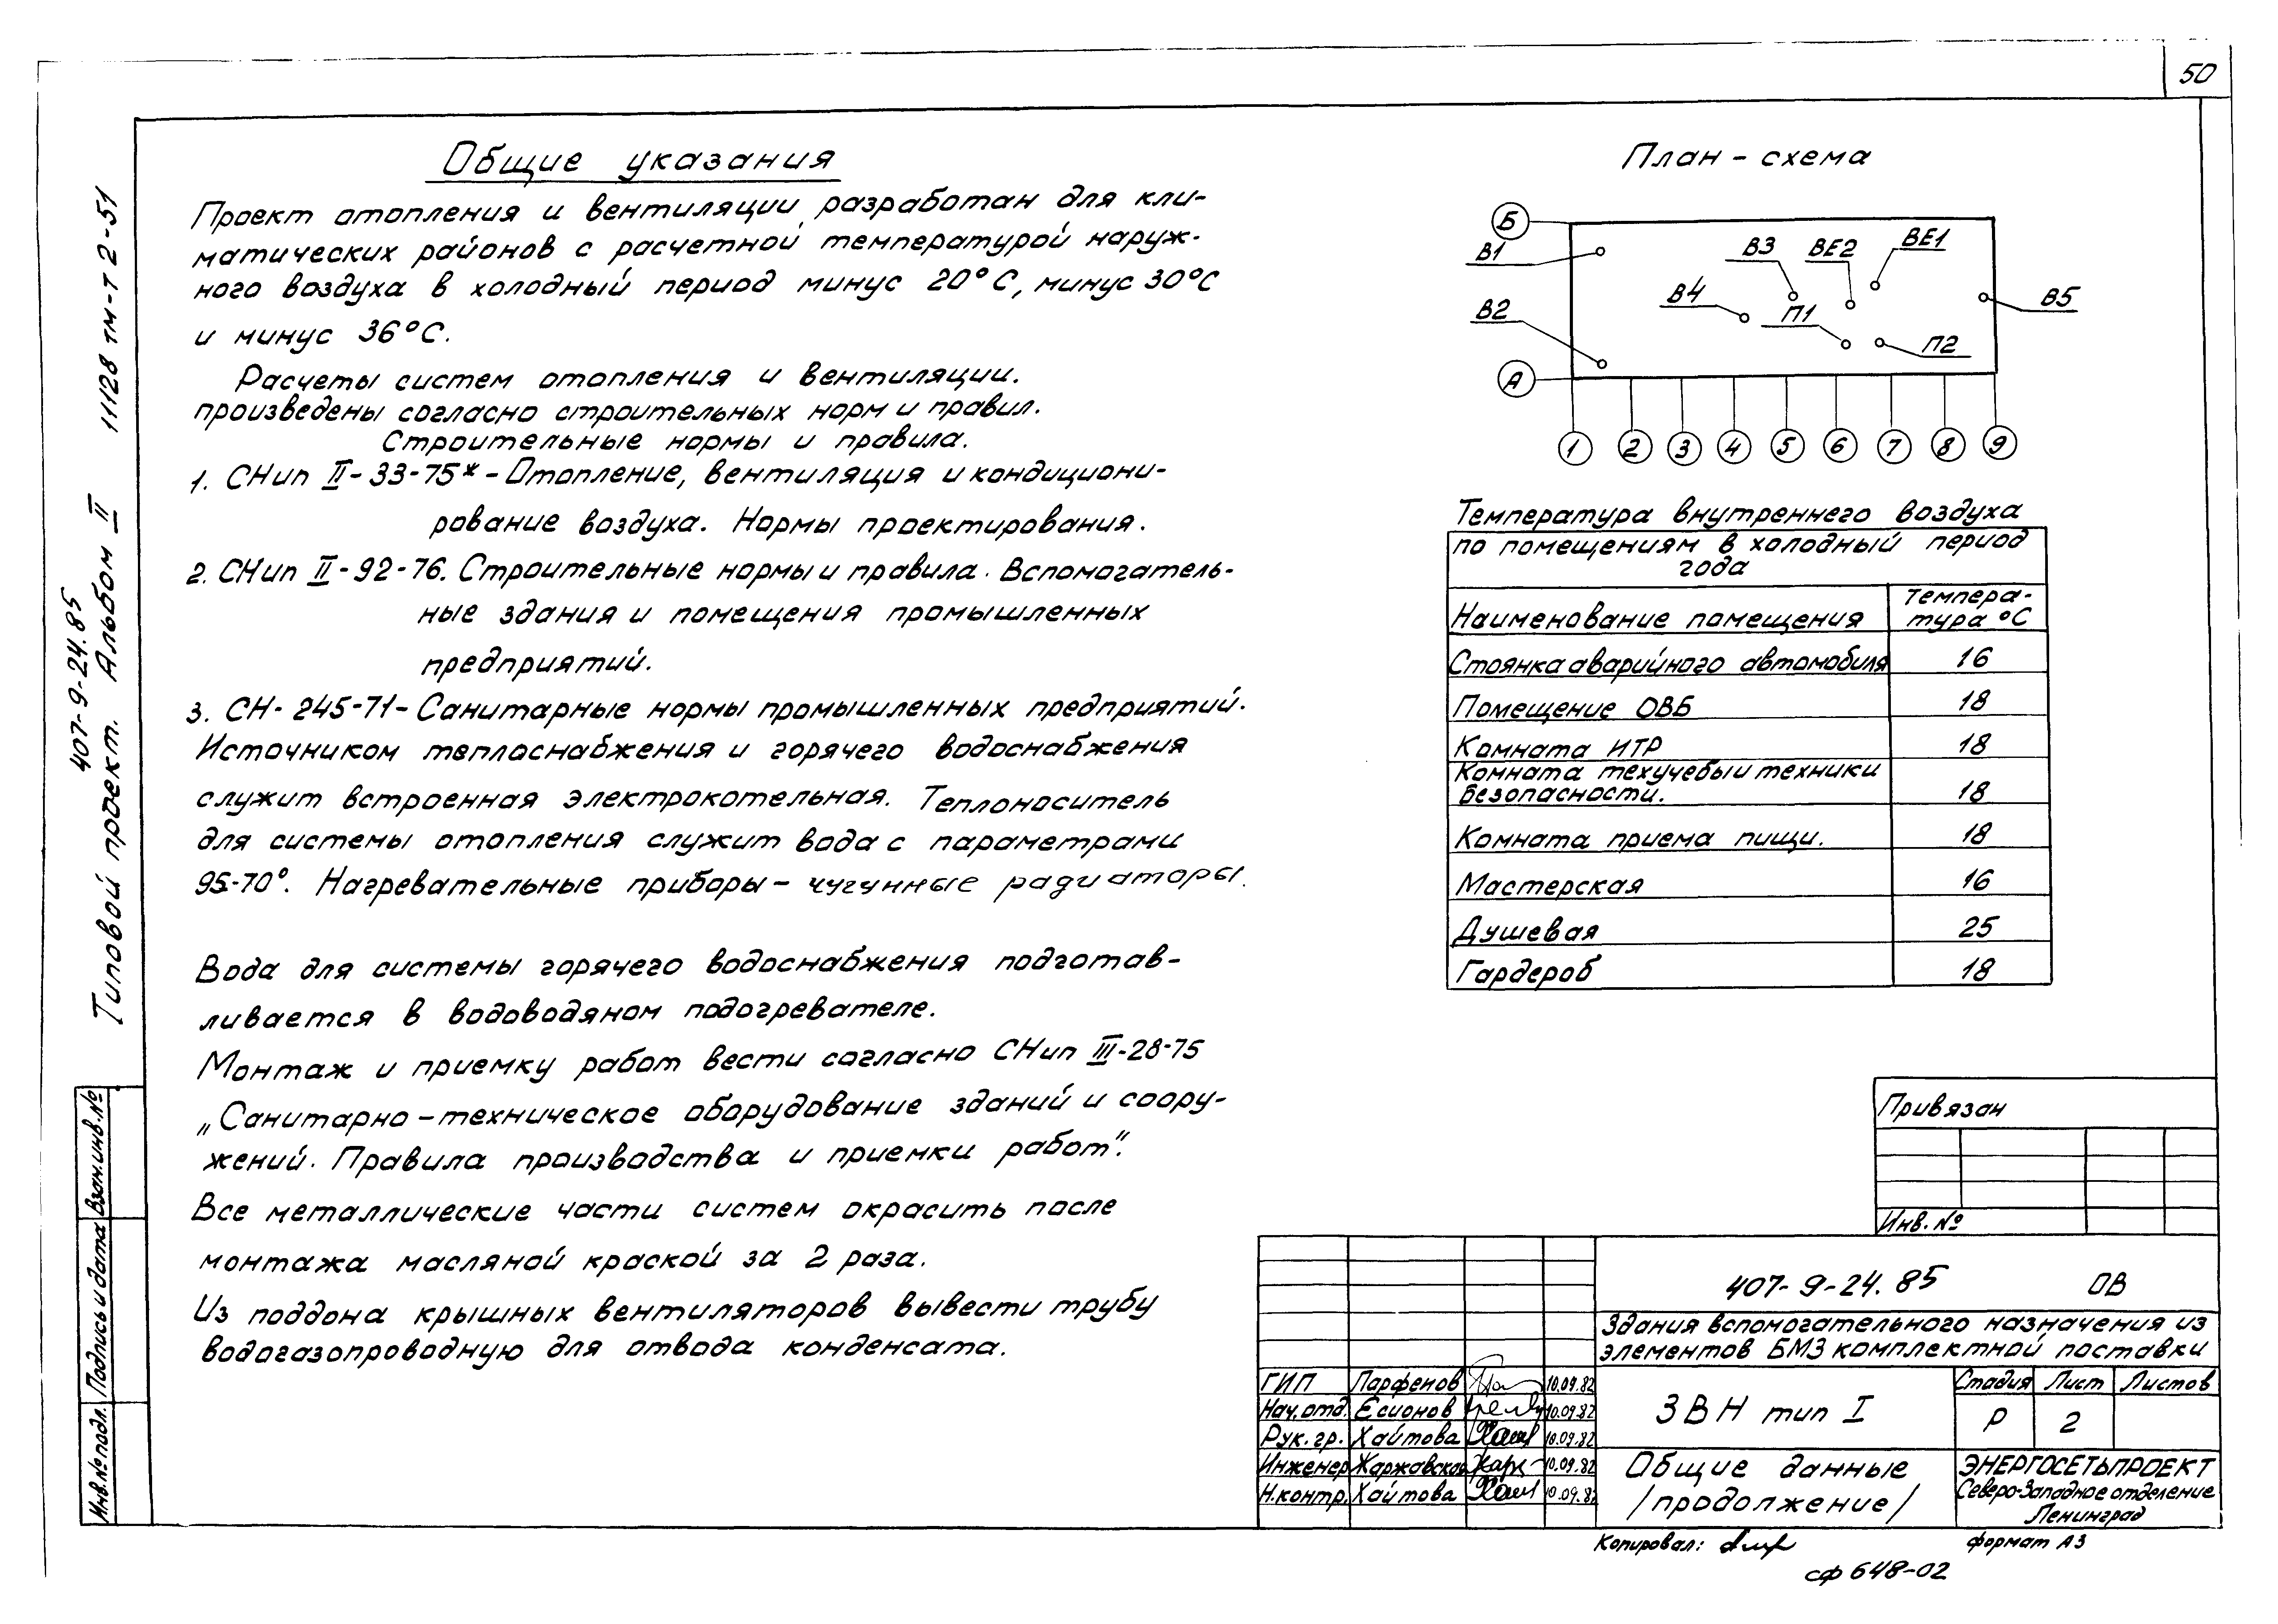 50
Общие указания
Проект отопления и вентиляции разработан для кли-
матических районов с расчетной температурой наруж-
ного воздуха в холодный период минус 20°С, минус 30°С
и минус 36°С.
Расчеты систем отопления и вентиляции.
произведены согласно строительных норм и правил.
Строительные нормы и правила.
1. СНиП II-33-75* - Отопление, вентиляция и кондициони-
рование воздуха. Нормы проектирования.
2. СНиП II-92-76. Строительные нормы и правила. Вспомогатель-
ные здания и помещения промышленных
предприятий.
3. СН-245-71- Санитарные нормы промышленных предприятий.
Источником теплоснабжения и горячего водоснабжения
служит встроенная электрокотельная. Теплоноситель
для системы отопления служит вода с параметрами
95-70°. Нагревательные приборы - чугунные радиаторы.
Вода для системы горячего водоснабжения подготав-
ливается в водоводяном подогревателе.
Монтаж и приемку работ вести согласно СНиП III-28-75
„Санитарно-техническое оборудование зданий и соору-
жений. Правила производства и приемки работ".
Все металлические части систем окрасить после
монтажа масляной краской за 2 раза.
Из поддона крышных вентиляторов вывести трубу
водогазопроводную для отвода конденсата.
План-схема
Б
В1
В3
ВЕ2
ВЕ1
В4
В5
В2
П1
П2
А
1 2 3 4 5 6 7 8 9
Температура внутреннего воздуха
по помещениям в холодный период
года
Наименование помещения
Темпера-
тура °С
Стоянка аварийного автомобиля 16
Помещение ОВБ 18
Комната ИТР 18
Комната техучебы и техники
безопасности. 18
Комната приема пищи. 18
Мастерская 16
Душевая 25
Гардероб 18
Привязан
Инв. №
407-9-24.85 ОВ
Здания вспомогательного назначения из
элементов БМЗ комплектной поставки
ГИП Парфенов 10.09.82
Нач. отд. Есионов 10.09.82
Рук. гр. Хаймова 10.09.82
Инженер Харжавская 10.09.82
Н.контр. Хаймова 10.09.82
ЗВН тип I
Стадия Лист Листов
Р 2
Общие данные
/продолжение/
ЭНЕРГОСЕТЬПРОЕКТ
Северо-Западное отделение
Ленинград
Копировал:
формат А3
сф 648-02
407-9-24.85
Типовой проект. Альбом II 11128 тм-т 2-51
Взам.инв.№
Подпись и дата
Инв.№ подл.